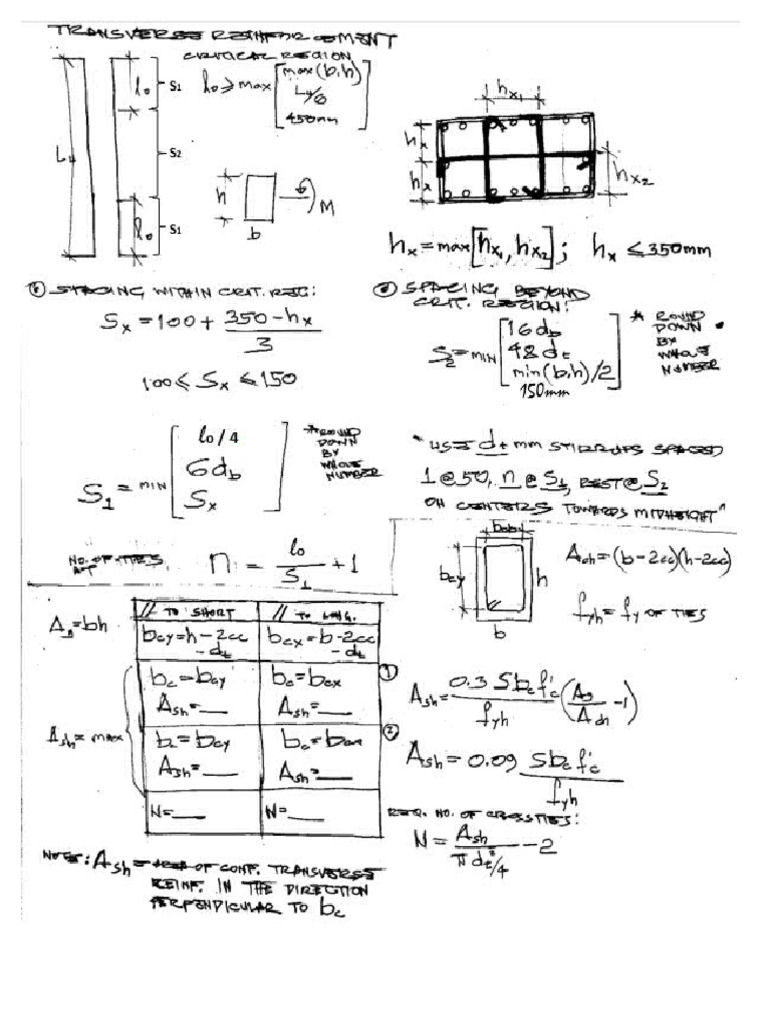 TRANSVERSE REINFORCEMENT
CRITICAL REGION
lo ≥ max [max(b,h)
Lu/6
450mm]
lo
S1
Lu
S2
lo
S1
h
b
M
hx1
hx
hx
hx2
hx = max [hx1, hx2]; hx ≤ 350mm
SPACING WITHIN CRIT. REG:
Sx = 100 + 350 - hx / 3
100 ≤ Sx ≤ 150
S1 = MIN [lo/4
6db
Sx]
* ROUND
DOWN
BY
WHOLE
NUMBER
SPACING BEYOND
CRIT. REGION:
S2 = MIN [16db
48dt
min(b,h)/2
150mm]
* ROUND
DOWN
BY
WHOLE
NUMBER
"USE dt mm STIRRUPS SPACED
1 @ 50, n @ S1, REST @ S2
ON CENTERS TOWARDS MIDHEIGHT"
NO. OF TIES
n = lo / S1 + 1
bcy
h
b
Ach = (b-2cc)(h-2cc)
fyh = fy OF TIES
Ag = bh
// TO SHORT
// TO LONG.
bcy = h - 2cc - dt
bcx = b - 2cc - dt
Ash = max
①
bc = bcy
Ash = __
bc = bcx
Ash = __
②
bc = bcy
Ash = __
bc = bcx
Ash = __
N = __
N = __
Ash = 0.3 S bc f'c / fyh (Ag / Ach - 1)
Ash = 0.09 S bc f'c / fyh
REQ. NO. OF CROSSTIES:
N = Ash / π dt²/4 - 2
NOTE: Ash = OF CONF. TRANSVERSE
REINF. IN THE DIRECTION
PERPENDICULAR TO bc